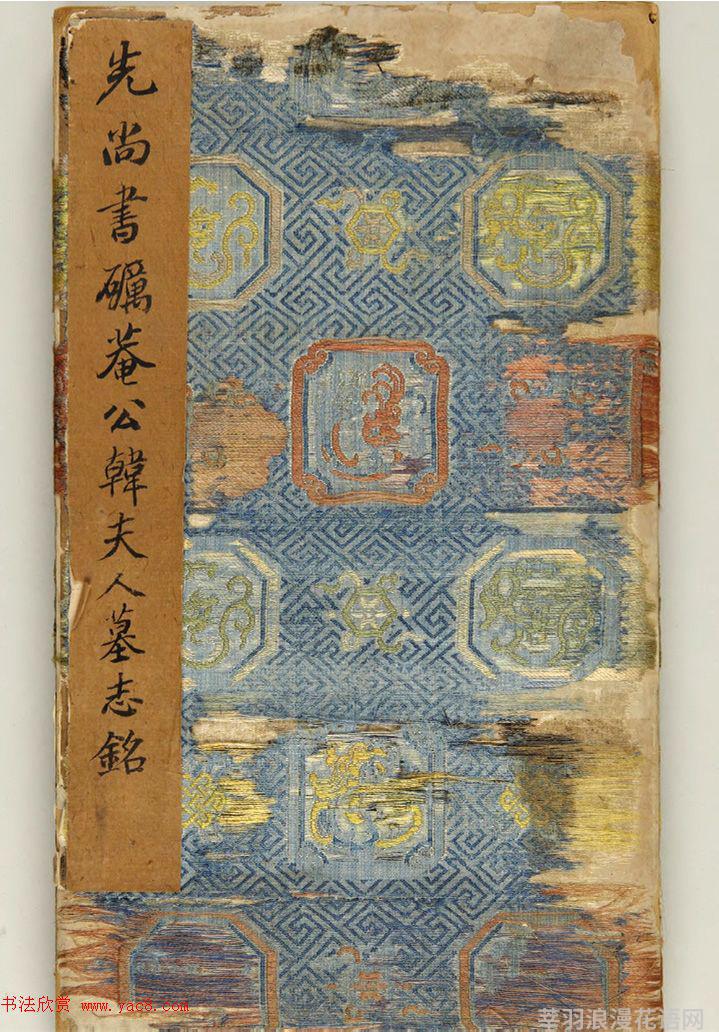 先尚書礪菴公韓夫人墓志銘
书法欣赏 www.yac8.com
莘羽浪漫花语网